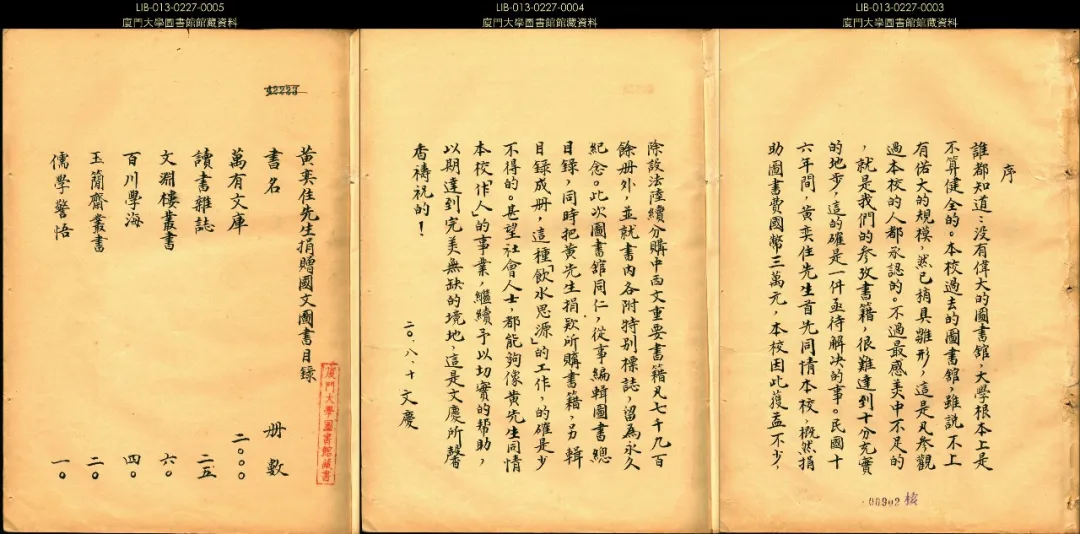 LIB-013-0227-0003
廈門大學圖書館館藏資料
序
誰都知道:沒有偉大的圖書舘,大學根本上是
不算健全的。本校過去的圖書舘,雖説不上
有偌大的規模,然已稍具雛形,這是凡參觀
過本校的人都承認的。不過最感美中不足的
,就是我們的參攷書籍,很難達到十分充實
的地步,這的確是一件亟待解決的事。民國十
六年間,黃奕住先生首先同情本校,概然捐
助圖書費國幣三萬元,本校因此獲益不少,
00902 核
LIB-013-0227-0004
廈門大學圖書館館藏資料
除設法陸續分購中西文重要書籍凡七千九百
餘册外,並就書内各附特别標誌,留為永久
紀念。此次圖書舘同仁,從事編輯圖書總
目録,同時把黃先生捐欵所購書籍,另輯
目録成册,這種「飲水思源」的工作,的確是少
不得的。甚望社會人士,都能夠像黃先生同情
本校「作人」的事業,繼續予以切實的帮助,
以期達到完美無缺的境地,這是文慶所馨
香禱祝的!
二〇.八.十 文慶
LIB-013-0227-0005
廈門大學圖書館館藏資料
廈門大學圖書館藏書
黃奕住先生捐贈國文圖書目錄
書名 册數
萬有文庫 二〇〇〇
讀書雜誌 二五
文淵樓叢書 六〇
百川學海 四〇
玉簡齋叢書 二〇
儒學警悟 一〇